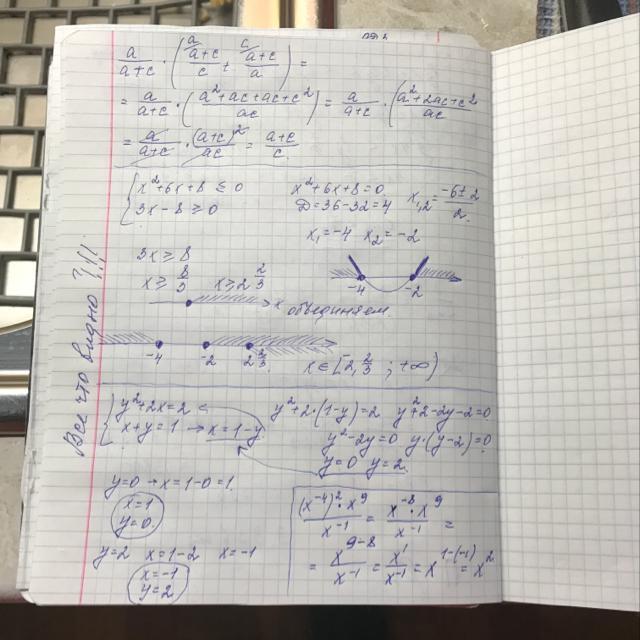 a/(a+c) · ((a/(a+c))/c + (c/(a+c))/a) =
= a/(a+c) · ((a²+ac+ac+c²)/ac) = a/(a+c) · ((a²+2ac+c²)/ac
= a/(a+c) · (a+c)²/ac = (a+c)/c
{ x²+6x+8 ≤ 0
3x-8 ≥ 0
x²+6x+8=0
D=36-32=4
x₁,₂ = (-6±2)/2
x₁=-4 x₂=-2
3x ≥ 8
x ≥ 8/3 x ≥ 2 2/3
x
-4 -2
объединяем
-4 -2 2 2/3
x ∈ [2 2/3 ; +∞)
{ y²+2x=2
x+y=1 → x=1-y
y²+2·(1-y)=2 y²+2-2y-2=0
y²-2y=0 y·(y-2)=0
y=0 y=2
y=0 → x=1-0=1
x=1
y=0
y=2 x=1-2 x=-1
x=-1
y=2
((x⁻⁴)²·x⁹)/x⁻¹ = (x⁻⁸·x⁹)/x⁻¹ =
= x⁹⁻⁸/x⁻¹ = x¹/x⁻¹ = x¹⁻⁽⁻¹⁾ = x²
Все что видно?!!!